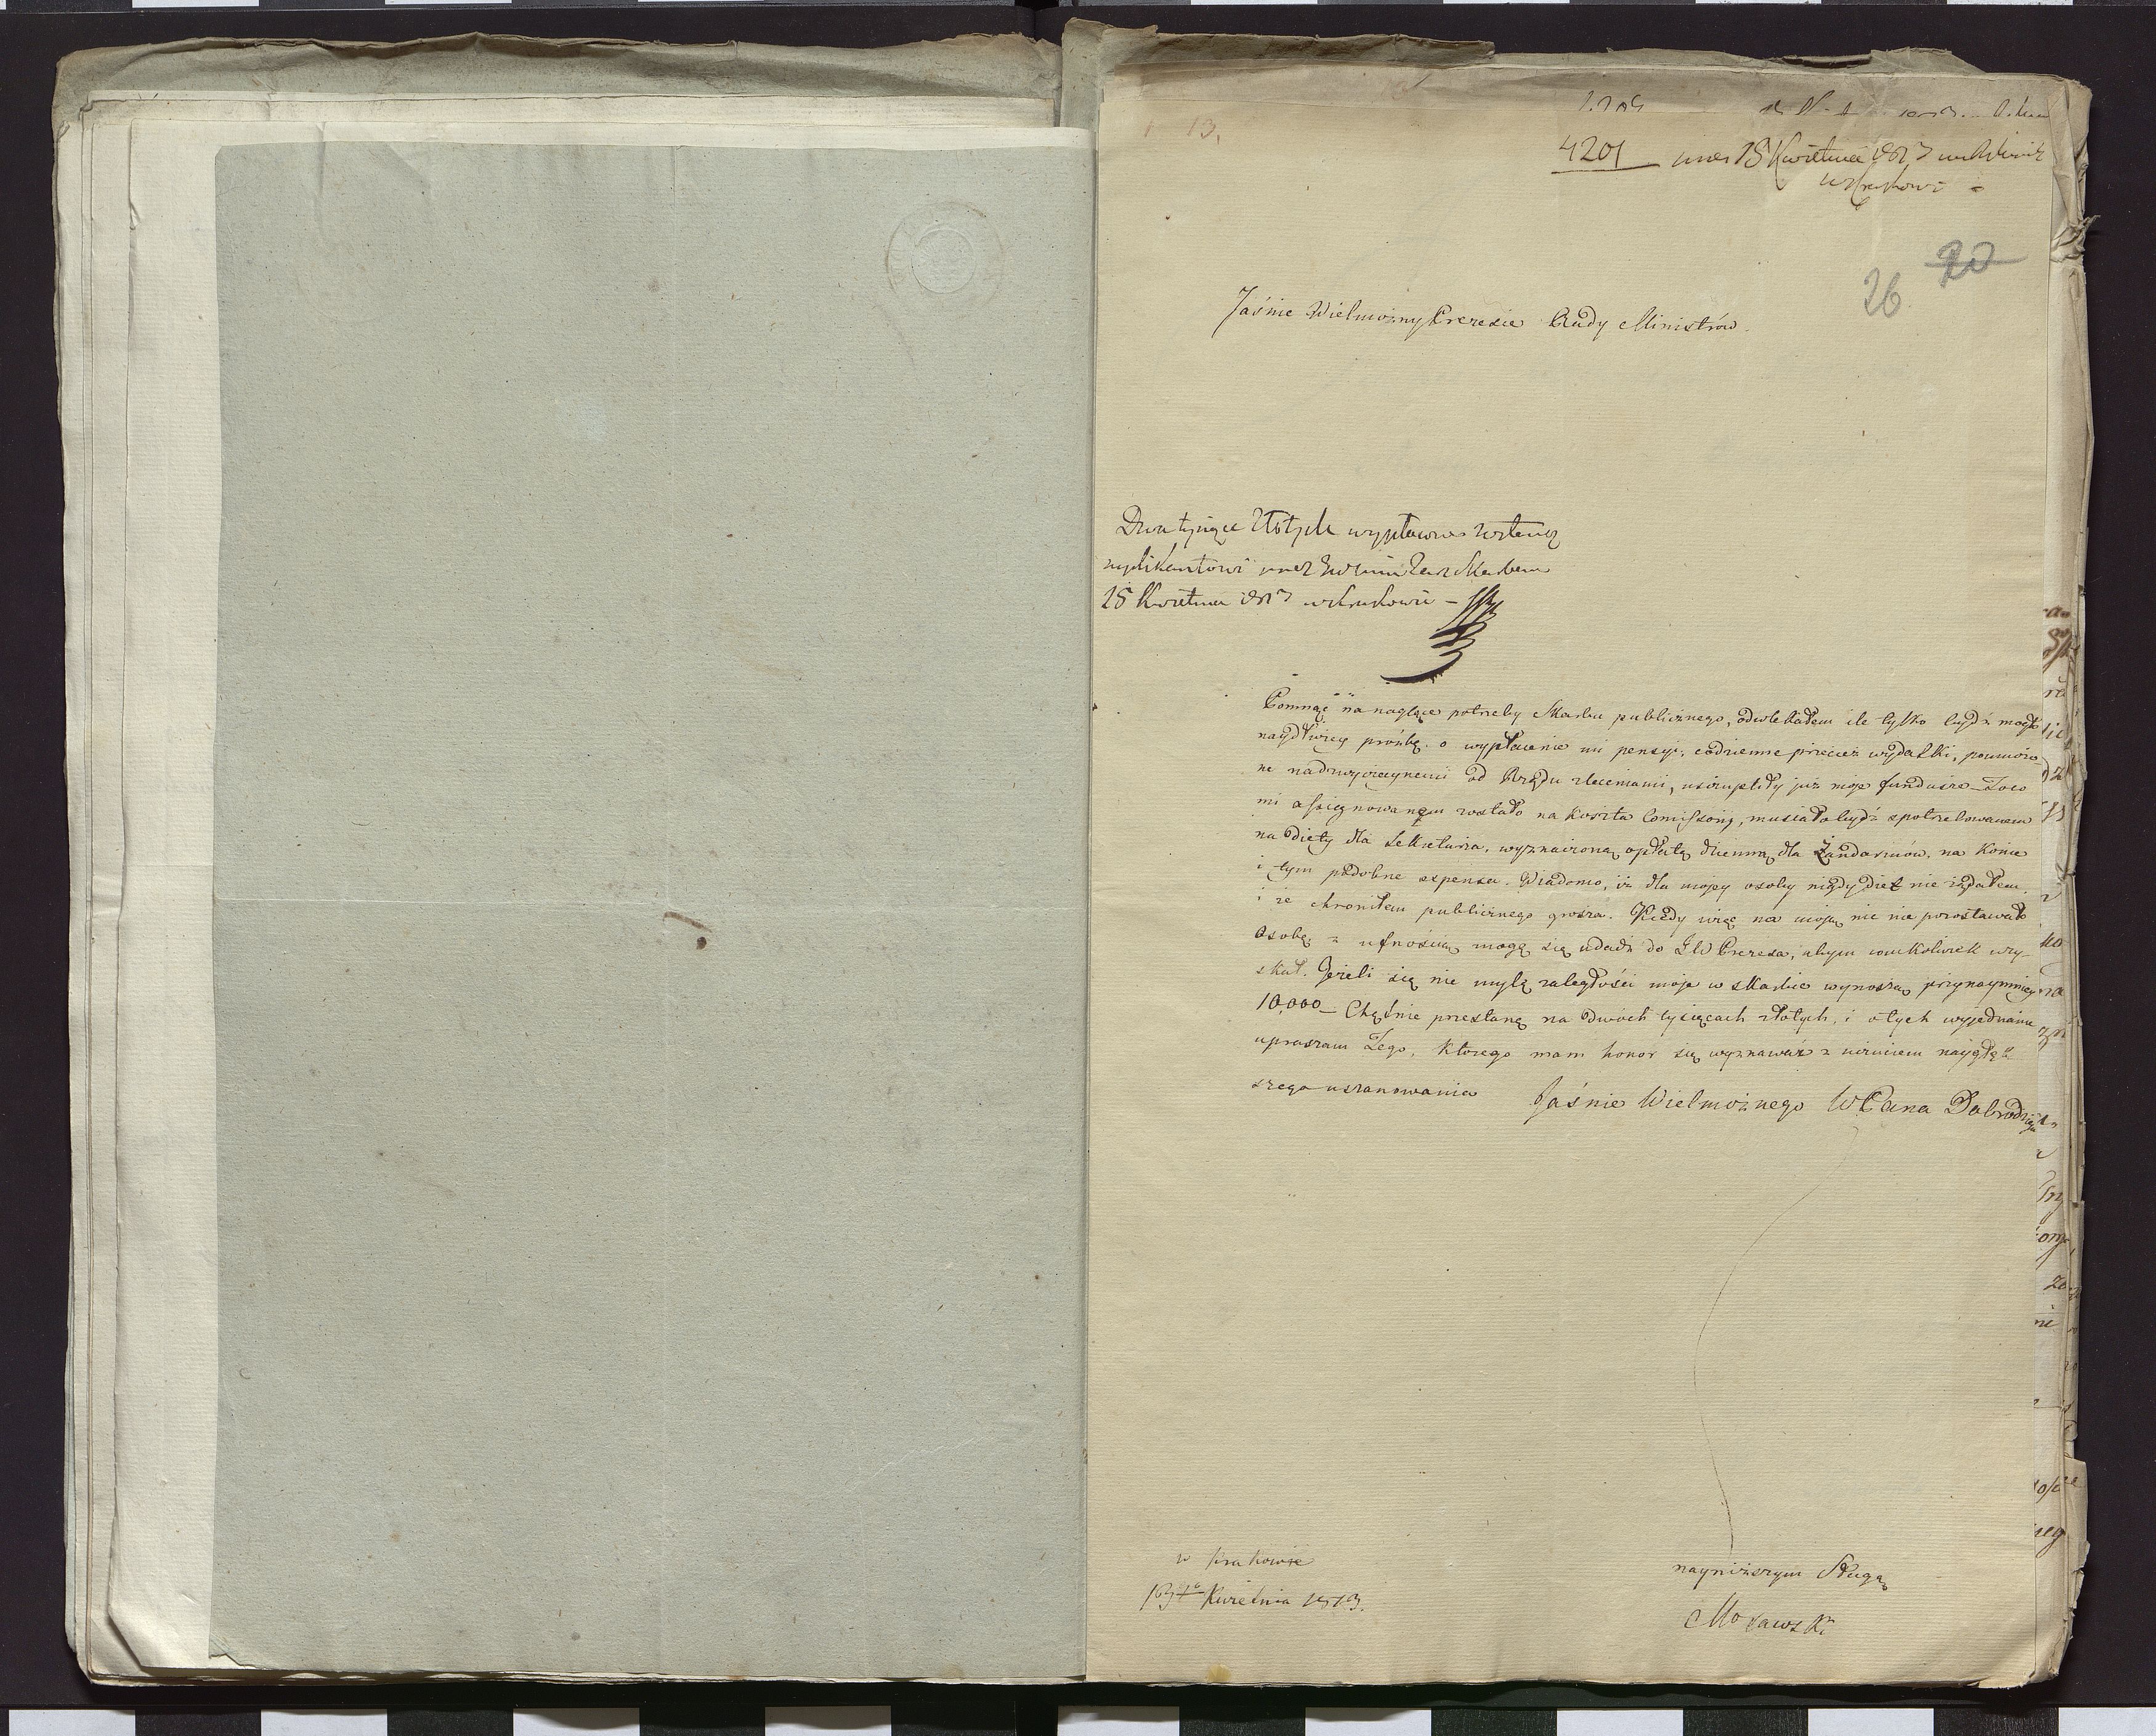 13.
4201 15 Kwietnia 1813
w Krakowie
20
26
Jaśnie Wielmożny Prezesie Rady Ministrów.
Dwa tysiące Złotych
suplikantowi Skarbu
15 Kwietnia 1813 w Krakowie –
Pomnąc na naglące potrzeby Skarbu publicznego, odwlekałem ile tylko bydź mogło
naydłużey proźbę o wypłacenie mi pensyi; codzienne przecież wydatki, pomnożo-
ne nadzwyczaynemi od Rządu zleceniami, uszczupliły już moje fundusze – To co
mi assignowanem zostało na koszta Comissony, musiało bydź spotrzebowanem
na diety dla Sekretarza, wyznaczoną opłatę dzienną dla Żandarmów, na konie
i tym podobne expensa. Wiadomo, iż dla mojey osoby nigdy diet nie żądałem,
i że chroniłem publicznego grosza. Kiedy więc na moją nic nie pozostawało
osobę, z ufnością mogę się udadź do JW Prezesa, abym cokolwiek uzy-
skał. Jeżeli się nie mylę zaległości moje w skarbie wynoszą przynaymniey
10,000 – Chętnie przestanę na dwóch tysiącach złotych, i o tych wyjednanie
upraszam Tego, którego mam honor się wyznawać z uczuciem naygłęb-
szego uszanowania
Jaśnie Wielmożnego WPana Dobrodzieja
w Krakowie
13go Kwietnia 1813.
nayniższym Sługą
Morawski